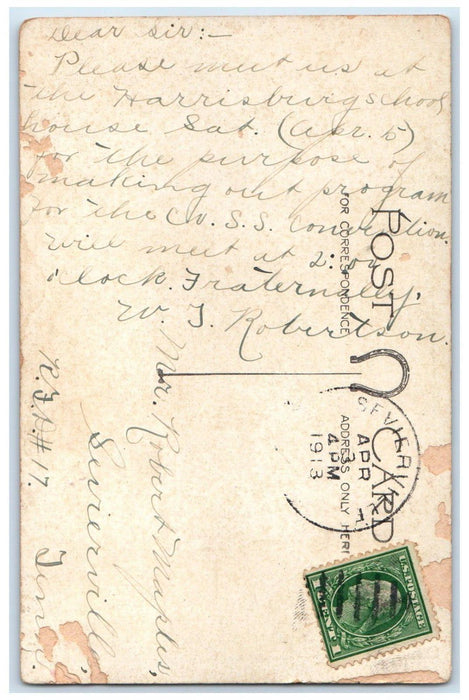 Dear sir:-
Please meet us at
the Harrisburg school
house Sat. (Apr. 5)
for the purpose of
making out program
for the Co. S. S. Convention.
Will meet at 2:00
o'clock. Fraternally,
W. J. Robertson.
Mr. Robert Maples,
Sevierville,
Tenn.
R.F.D.# 17.
POST CARD
FOR CORRESPONDENCE
ADDRESS ONLY HERE
SEVIERV
APR 3
4 PM
1913
U.S. POSTAGE
1 CENT 1